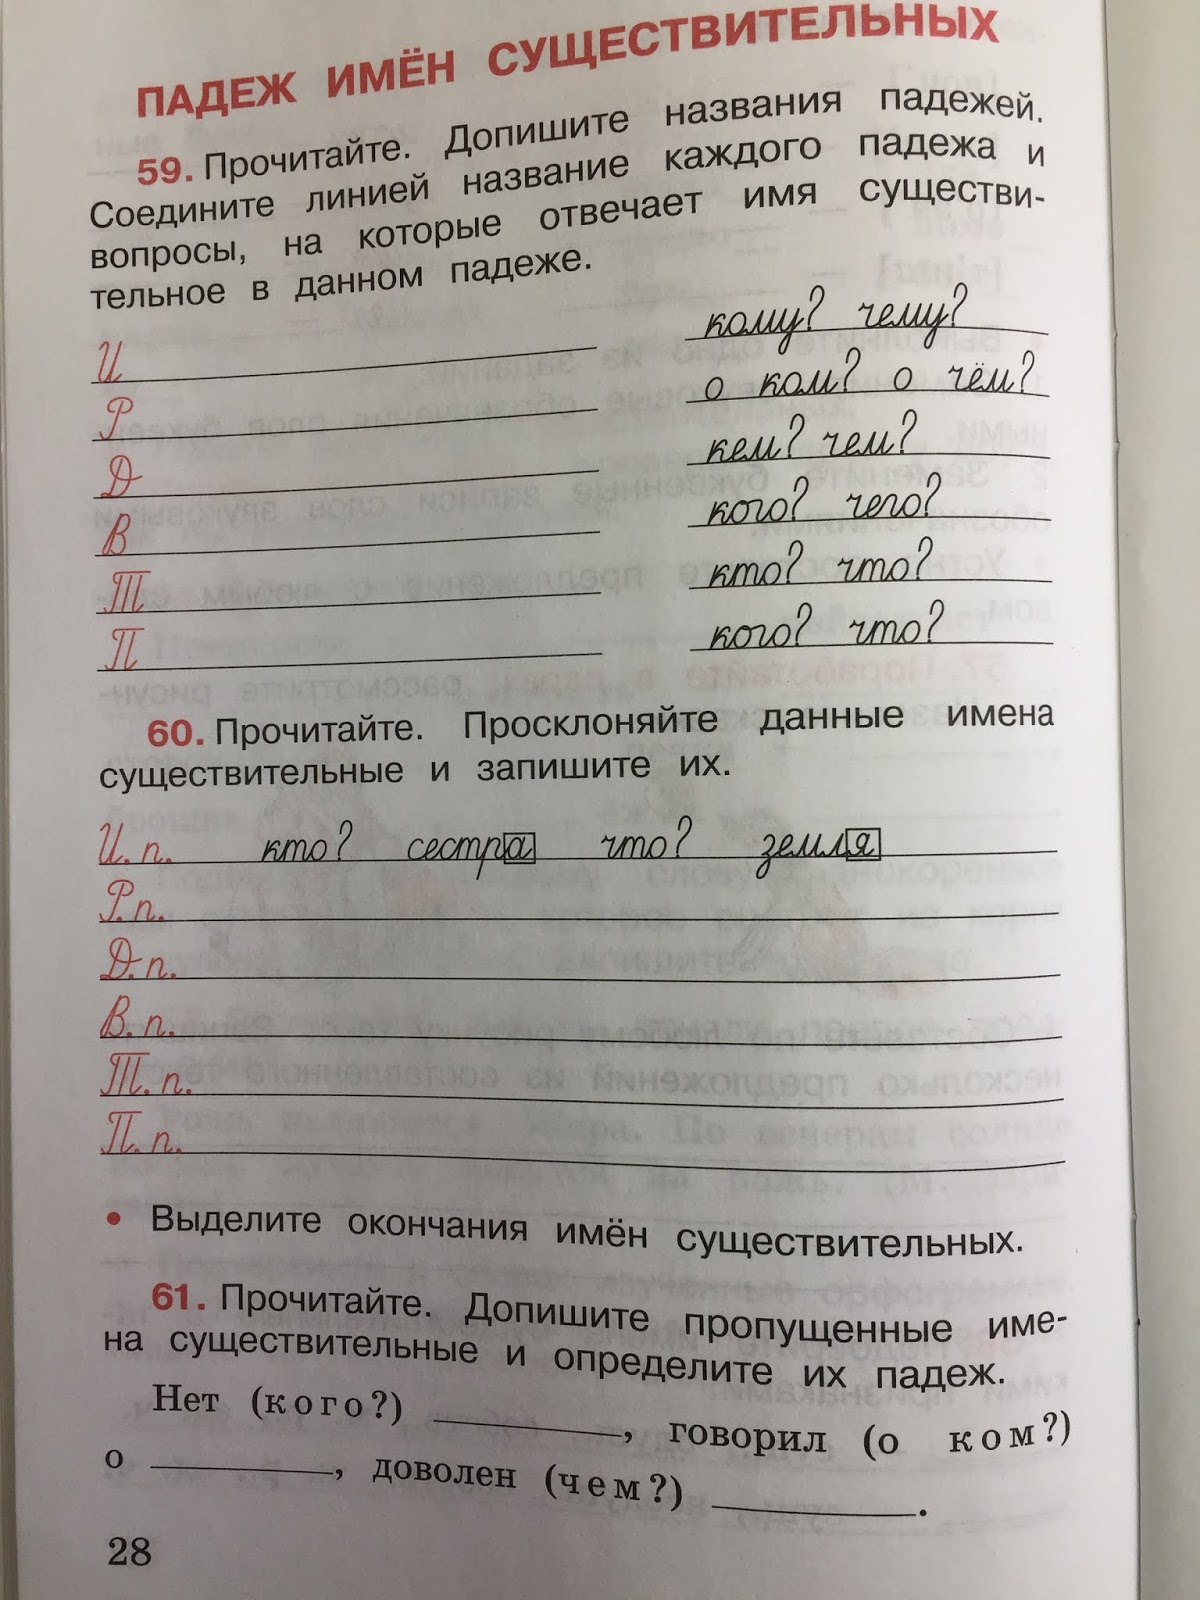 ПАДЕЖ ИМЁН СУЩЕСТВИТЕЛЬНЫХ
59. Прочитайте. Допишите названия падежей.
Соедините линией название каждого падежа и
вопросы, на которые отвечает имя существи-
тельное в данном падеже.
И кому? чему?
Р о ком? о чём?
Д кем? чем?
В кого? чего?
Т кто? что?
П кого? что?
60. Прочитайте. Просклоняйте данные имена
существительные и запишите их.
И. п. кто? сестра что? земля
Р. п.
Д. п.
В. п.
Т. п.
П. п.
• Выделите окончания имён существительных.
61. Прочитайте. Допишите пропущенные име-
на существительные и определите их падеж.
Нет (кого?) ________, говорил (о ком?)
о ________, доволен (чем?) ________.
28